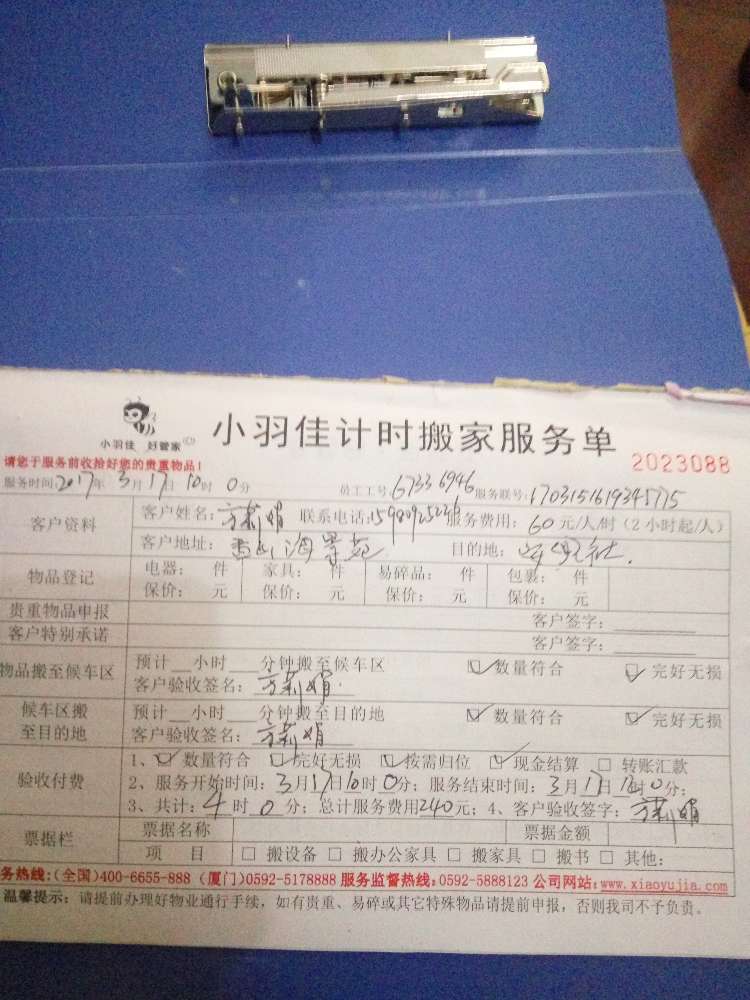 小羽佳 好管家
小羽佳计时搬家服务单
2023088
请您于服务前收拾好您的贵重物品!
服务时间:2017年3月17日10时0分 员工工号:67336946 服务联号:1703151619345775
客户资料
客户姓名:方莉娟 联系电话: 服务费用:60元/人/时(2小时起/人)
客户地址: 海景苑 目的地:
物品登记
电器: 件 家具: 件 易碎品: 件 包裹: 件
保价: 元 保价: 元 保价: 元 保价: 元
贵重物品申报 客户签字:
客户特别承诺 客户签字:
物品搬至候车区
预计__小时__分钟搬至候车区 ☑数量符合 ☑完好无损
客户验收签名:方莉娟
候车区搬至目的地
预计__小时__分钟搬至目的地 ☑数量符合 ☑完好无损
客户验收签名:方莉娟
验收付费
1、☑数量符合 ☑完好无损 ☑按需归位 ☑现金结算 □转账汇款
2、服务开始时间:3月17日10时0分; 服务结束时间:3月17日 时0分;
3、共计:4时0分;总计服务费用240元;4、客户验收签字:方莉娟
票据栏
票据名称 票据金额
项 目 □搬设备 □搬办公家具 □搬家具 □搬书 □其他:
务热线:(全国)400-6655-888 (厦门)0592-5178888 服务监督热线:0592-5888123 公司网站:www.xiaoyujia.com
温馨提示:请提前办理好物业通行手续,如有贵重、易碎或其它特殊物品请提前申报,否则我司不予负责。